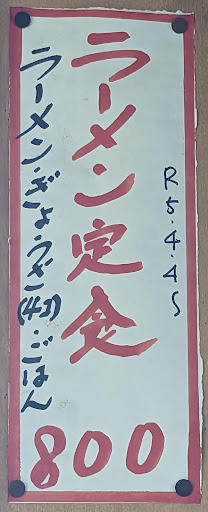 R5.4.4〜
ラーメン定食
ラーメン・ぎょうざ(4コ)・ごはん
800